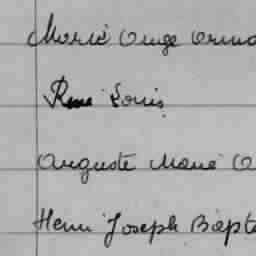 Marie Ange Arma
Rene Louis
Auguste Marie O
Henri Joseph Bapt